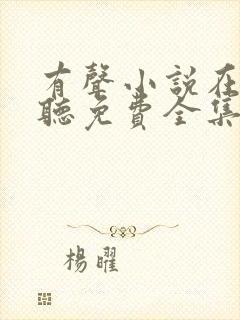 有聲小說在
聽免費全集
楊曜